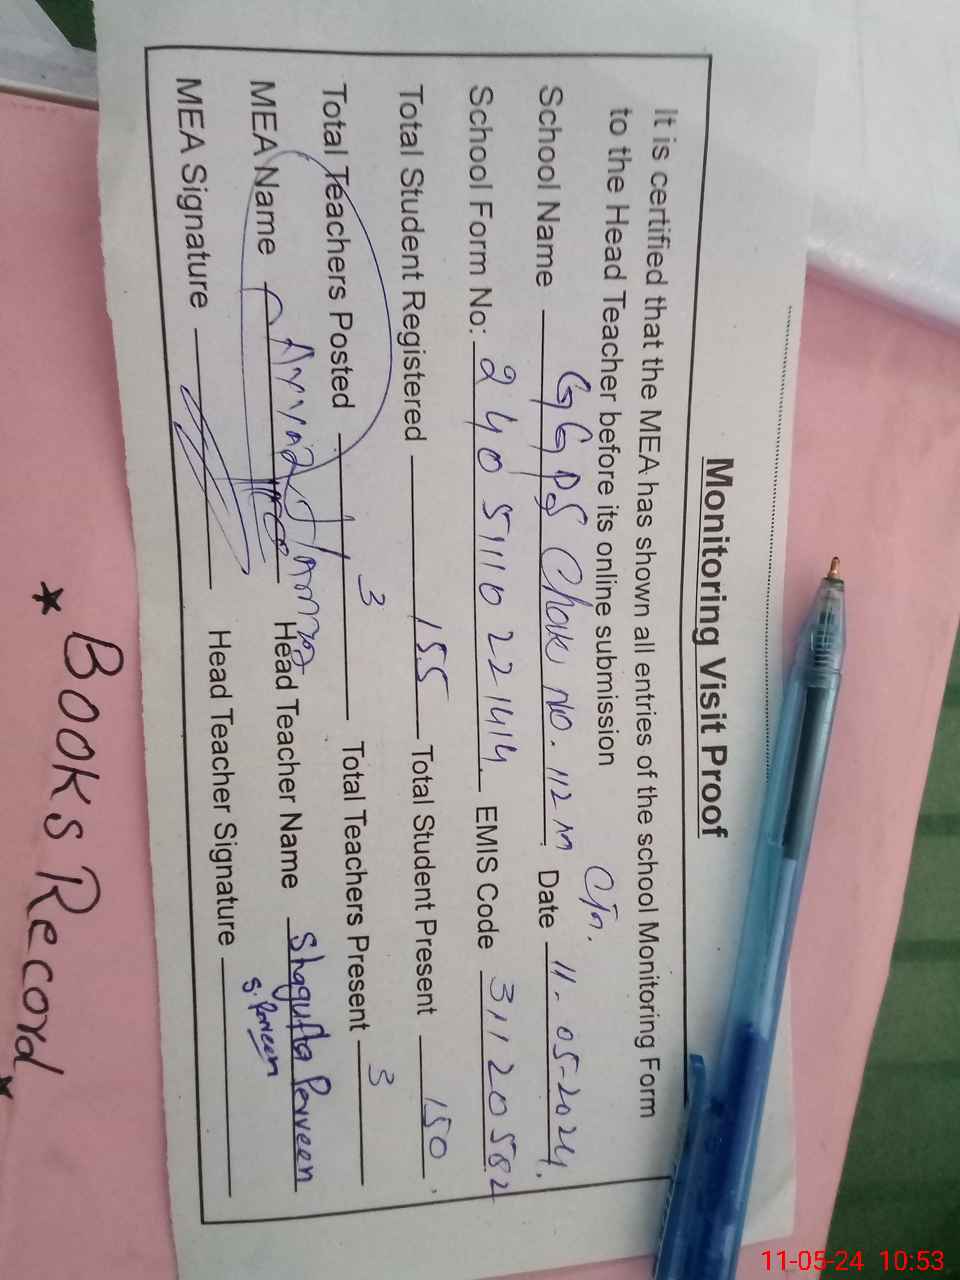 Monitoring Visit Proof
It is certified that the MEA has shown all entries of the school Monitoring Form
to the Head Teacher before its online submission
School Name GGPS Chak No. 112 m Date 11-05-2024.
School Form No: 24051110221414 EMIS Code 31120582
Total Student Registered 155 Total Student Present 150
Total Teachers Posted 3 Total Teachers Present 3
MEA Name Head Teacher Name Shagufta Perveen
MEA Signature Head Teacher Signature S. Perveen
* Books Record
11-05-24 10:53